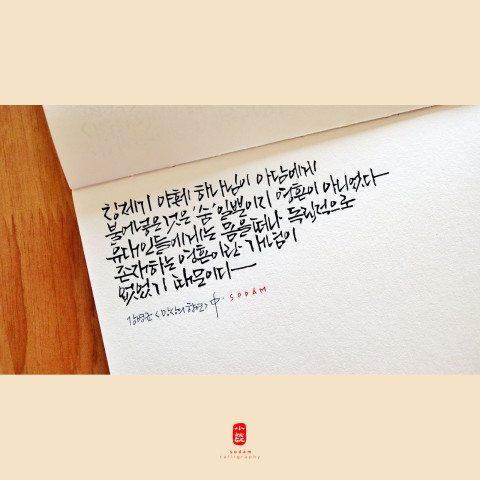 창제기 야훼 하나님이 아담에게
불어넣은것은 '숨'일뿐이지 영혼이 아니었다
유대인들에게는 몸을떠나 독립적으로
존재하는 영혼이란 개념이
없었기 때문이다
강병균 <망상의 향연> 中. SODAM
小談
sodam
calligraphy